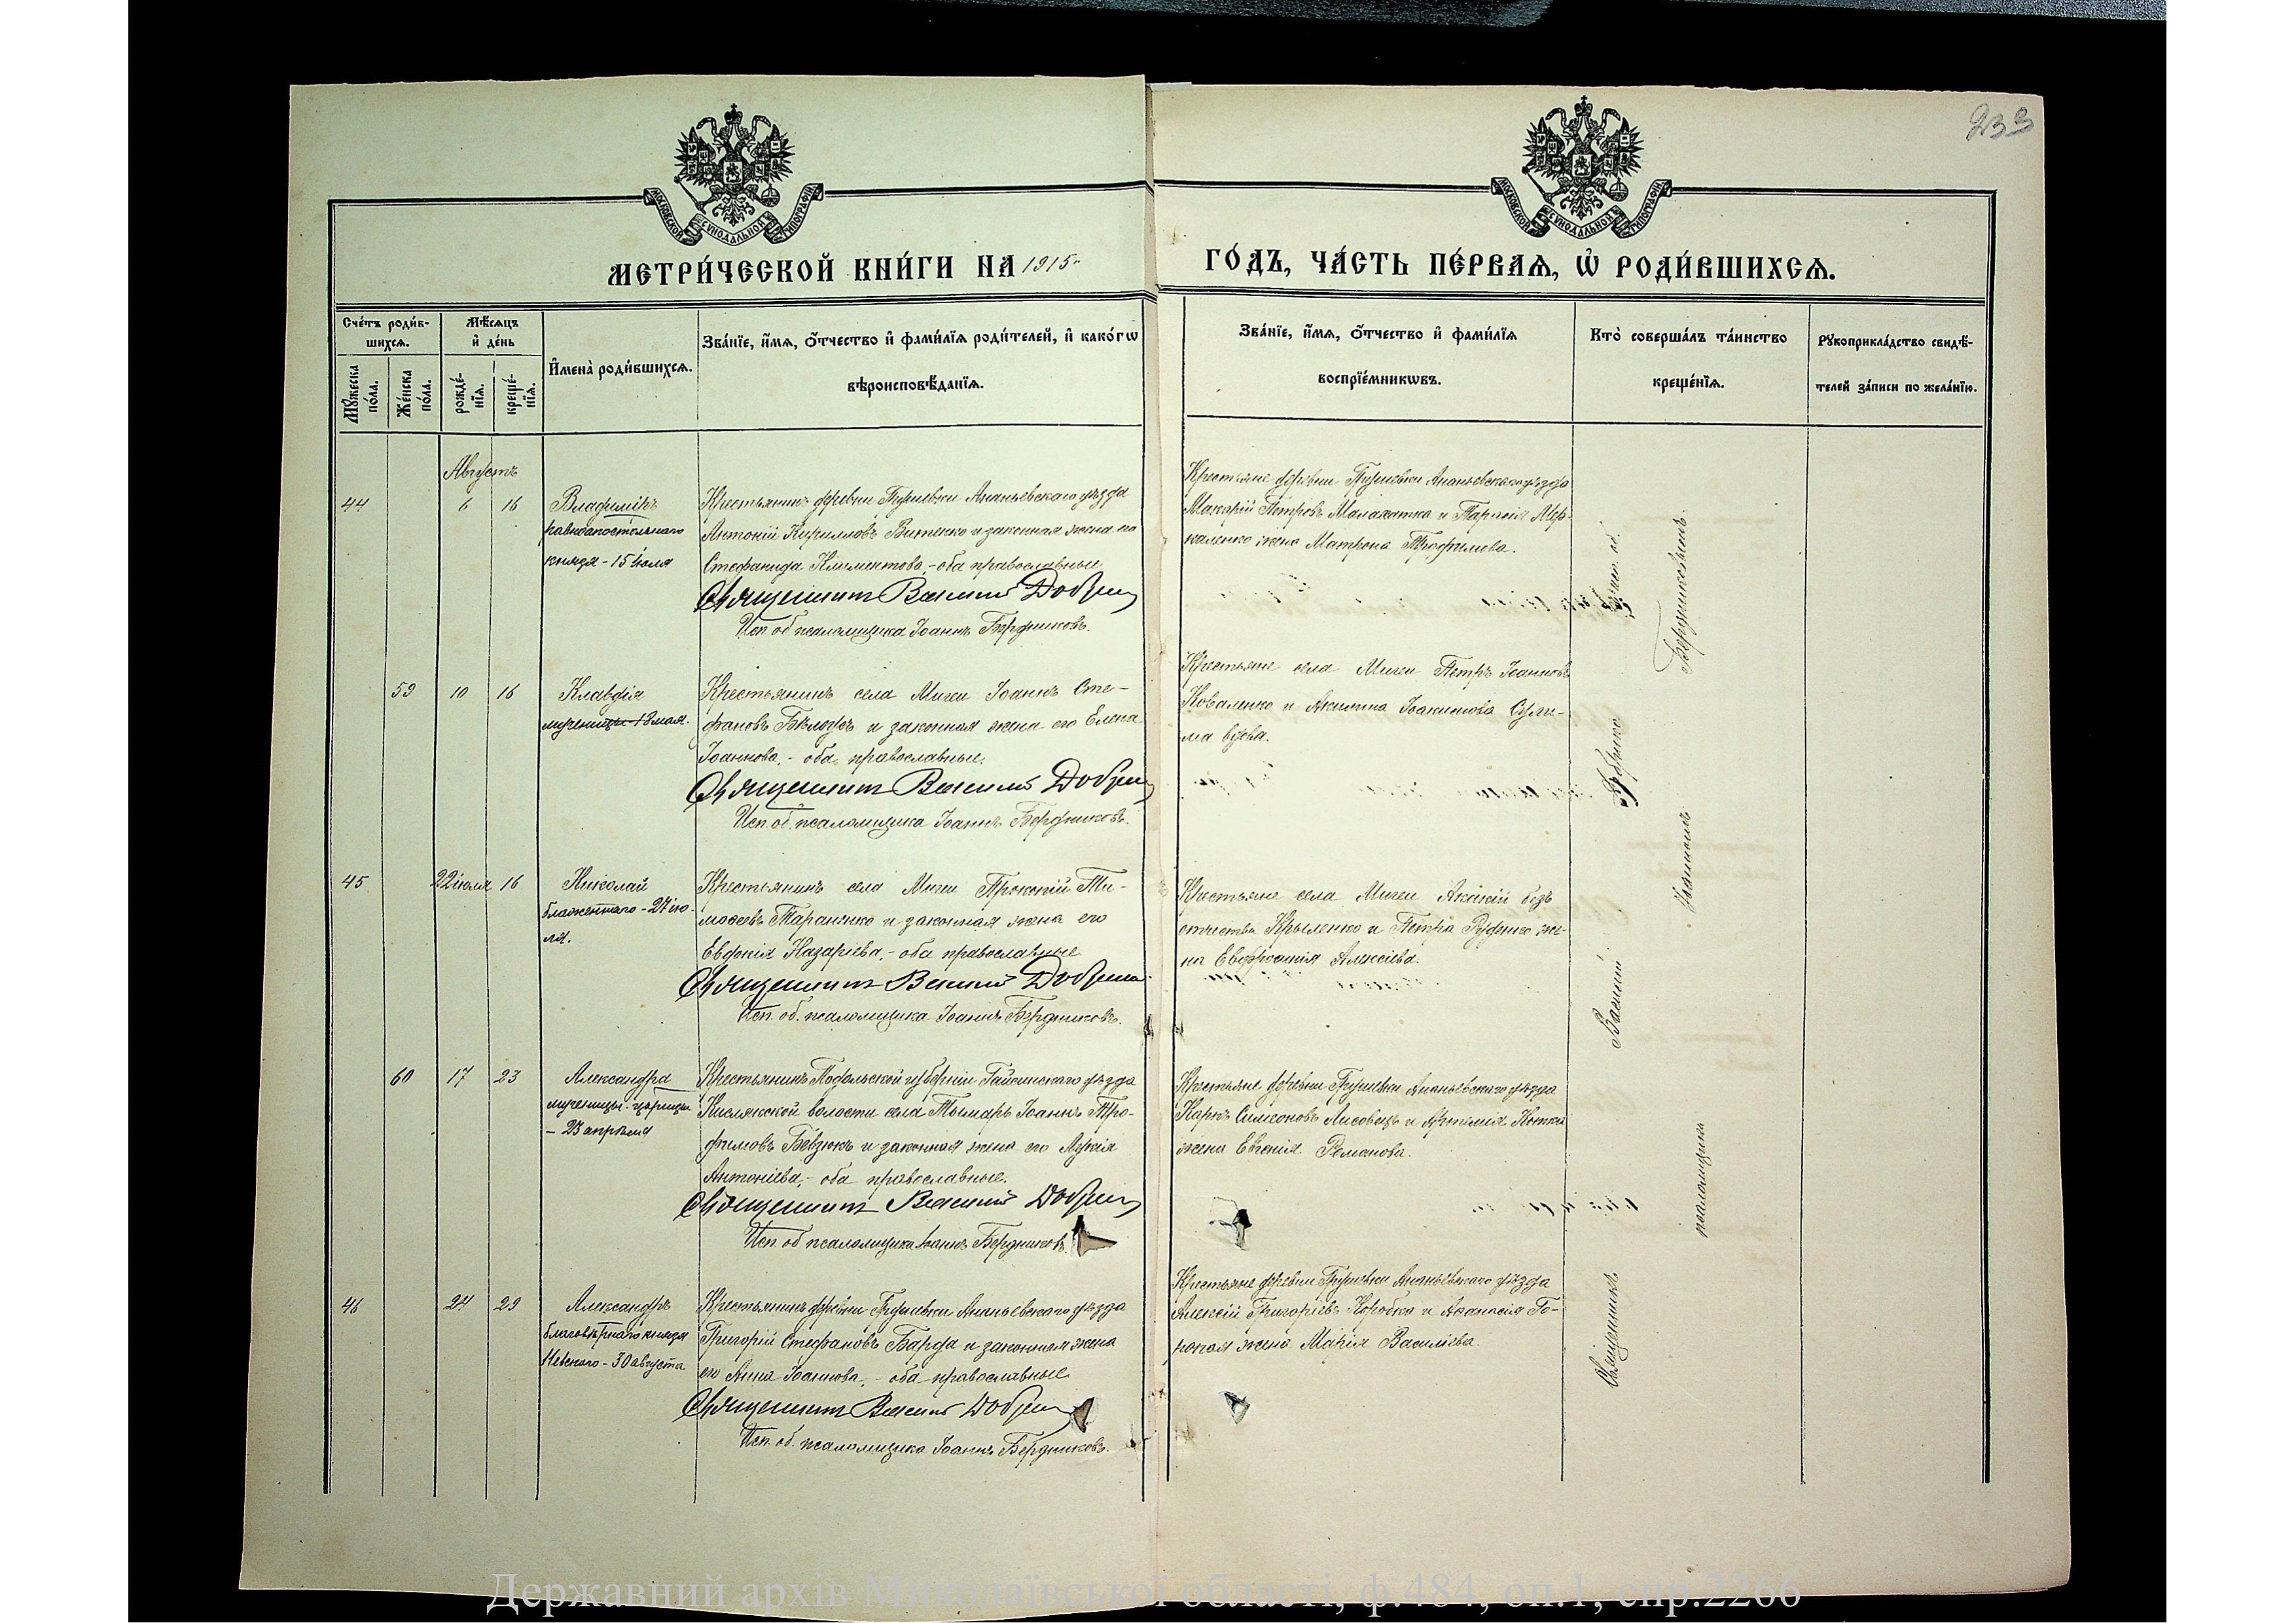 233
МОСКОВСКОЙ СѴНОДАЛЬНОЙ ТИПОГРАФІИ
МОСКОВСКОЙ СѴНОДАЛЬНОЙ ТИПОГРАФІИ
МЕТРИ́ЧЕСКОЙ КНИ́ГИ НА 1915
ГО́ДЪ, ЧА́СТЬ ПЕ́РВАѦ, Ѡ҆ РОДИ́ВШИХСѦ.
Сче́тъ роди́в-
шихсѧ.
Мꙋ́жеска по́ла.
Же́нска по́ла.
Мѣ́сѧцъ
и҆ де́нь
рожде́-
нїѧ.
креще́-
нїѧ.
И҆мена̀ роди́вшихсѧ.
Зва́нїе, и҆́мѧ, ѻ҆́тчество и҆ фами́лїѧ роди́телей, и҆ како́гѡ
вѣроисповѣ́данїѧ.
Зва́нїе, и҆́мѧ, ѻ҆́тчество и҆ фами́лїѧ
воспрїе́мникѡвъ.
Кто̀ соверша́лъ та́инство
креще́нїѧ.
Рꙋкоприкла́дство свидѣ́-
телей за́писи по жела́нїю.
Августъ
44 6 16
Владиміръ
равноапостольнаго
князя - 15 іюля
Крестьянинъ деревни Грушевки Ананьевскаго уѣзда
Антоній Кирилловъ Витенко и законная жена его
Стефанида Климентова, - оба православные
Священникъ Василій
Исп. об. псаломщика Іоаннъ Бердниковъ.
Крестьяне деревни Грушевки Ананьевскаго уѣзда
Макарій Петровъ Малахатка и Тарасія
жена Матрона Трофимова.
59 10 16
Клавдія
мученицы - 18 мая.
Крестьянинъ села Мигеи Іоаннъ Сте-
фановъ и законная жена его Елена
Іоаннова, - оба православные.
Священникъ Василій
Исп. об. псаломщика Іоаннъ Бердниковъ.
Крестьяне села Мигеи Петръ Іоанновъ
Коваленко и Акилина Іоакимова Сули-
ма вдова.
45 22 іюля 16
Николай
блаженнаго - 27 ію-
ля.
Крестьянинъ села Мигеи Прокопій Ти-
моѳеевъ Тараненко и законная жена его
Евдокія Назаріева, - оба православные
Священникъ Василій
Исп. об. псаломщика Іоаннъ Бердниковъ.
Крестьяне села Мигеи безъ
отчества Крыленко и Петра Руденко же-
на Евфросинія Алексіева.
60 17 23
Александра
мученицы - царицы
- 23 апрѣля
Крестьянинъ Подольской губерніи Гайсинскаго уѣзда
Кислякской волости села Тымаръ Іоаннъ Тро-
фимовъ Бевзюкъ и законная жена его Марія
Антоніева, - оба православные.
Священникъ Василій
Исп. об. псаломщика Іоаннъ Бердниковъ.
Крестьяне деревни Грушевки Ананьевскаго уѣзда
Карпъ Симеоновъ Лисовецъ и Артемія
жена Евгенія Романова.
46 24 29
Александръ
благовѣрнаго князя
Невскаго - 30 августа
Крестьянинъ деревни Грушевки Ананьевскаго уѣзда
Григорій Стефановъ Барда и законная жена
его Анна Іоаннова, - оба православные
Священникъ Василій
Исп. об. псаломщика Іоаннъ Бердниковъ.
Крестьяне деревни Грушевки Ананьевскаго уѣзда
Алексій Григоріевъ Коробка и Аѳанасія
жена Марія Василіева.
Священникъ Василій
псаломщика Іоанномъ Бердниковымъ.
Державний архів Миколаївської області, ф.484, оп.1, спр.2266